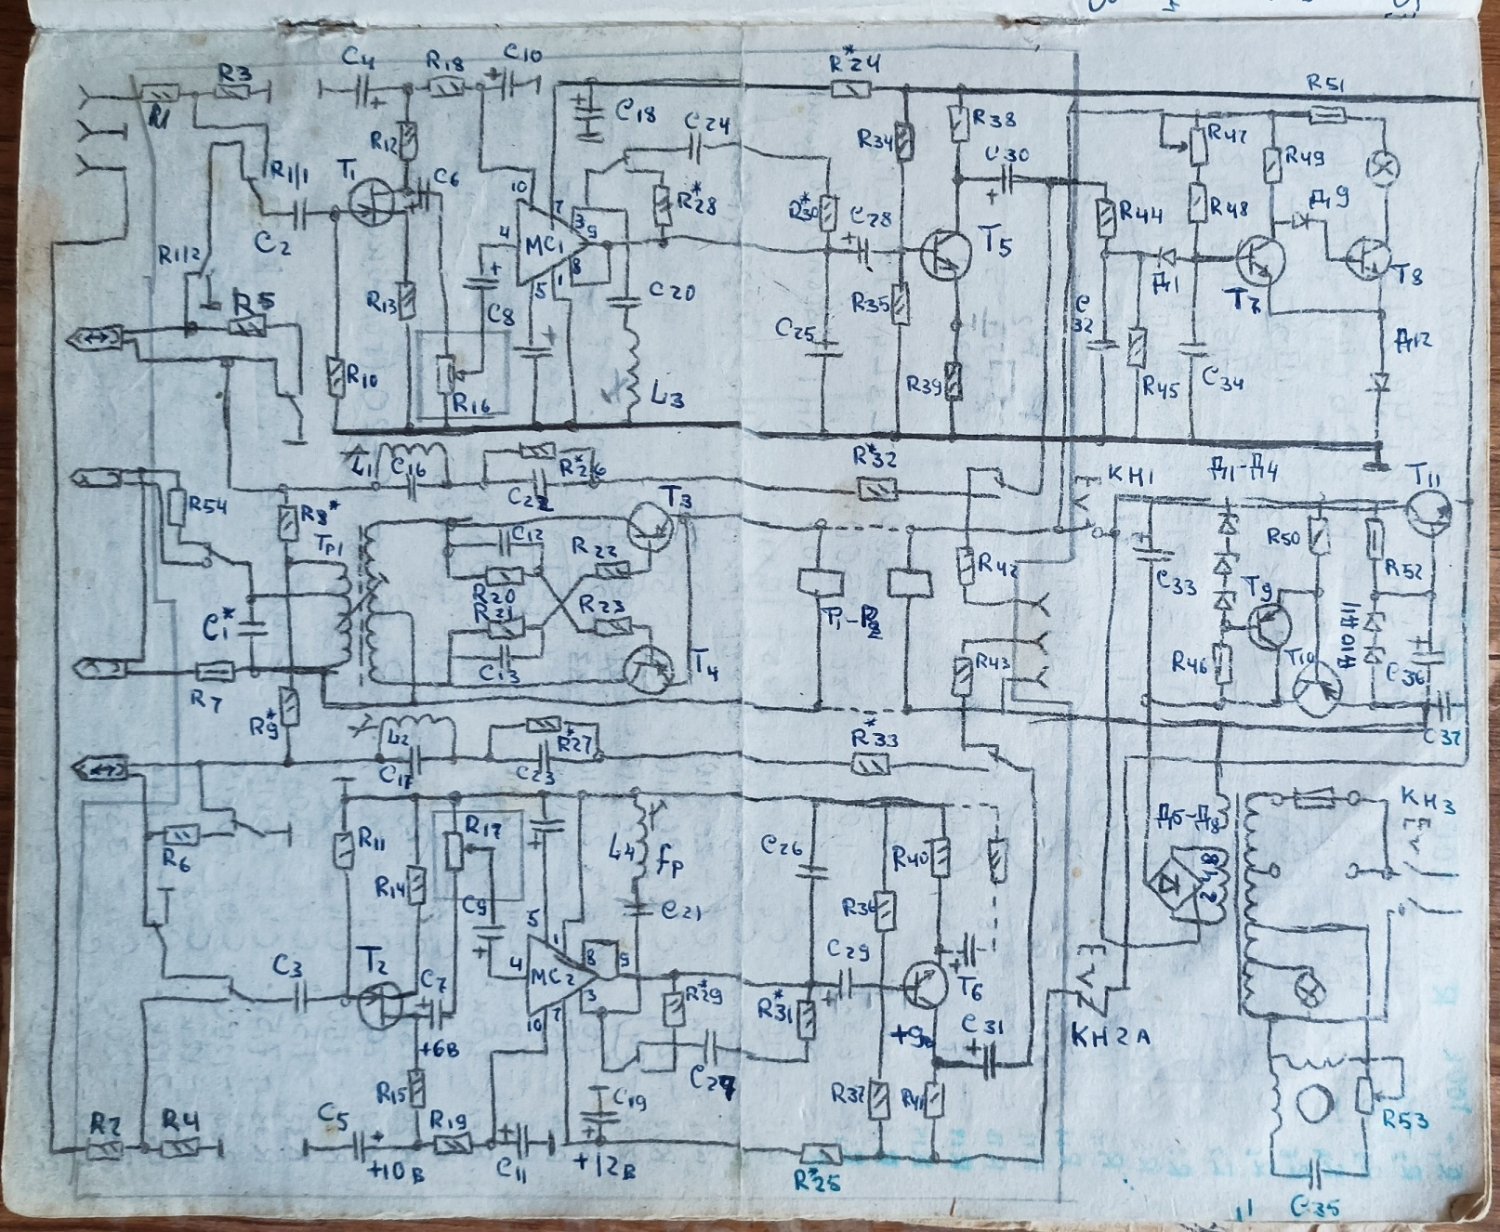 C4 R18 C10
R3 R*24 R51
R1
C18 C24 R34 R38 R47
R12 C30 R49
T1
R1/1 C6 10 7 R*28 R*30 C28 R44 R48 Д9
3
C2 4 MC1 9 T5 T8
8
R1/2 R13 5 1 C20 Д1 T7
R5 C8 C25 R35 C32 Д12
R10 R39 R45 C34
R16 L3
R*32
L1 C16 R*26 КН1 Д1-Д4 T11
R54 R8* C22 T3
Тр1 C12 R22 R50
R20 R42 C33 R52
C1* R21 R23 P1-P2 T9
C13 T4 R43 R46 T10 C36
R7
R9* L2 R*27 R*33 C37
C17 C23
R17 Д5-Д8 КН3
R11 L4 fp C26 R40
R6
R14 C9 C21 R36
5 1
C3 T2 C7 4 MC2 8 9 C29 T6
3 R*29 R*31
10 7 +9в C31 КН2А
+6в
R15 C19 R37 R41 R53
R2 R4 C5 R19
+10в C11 +12в R*25 C35